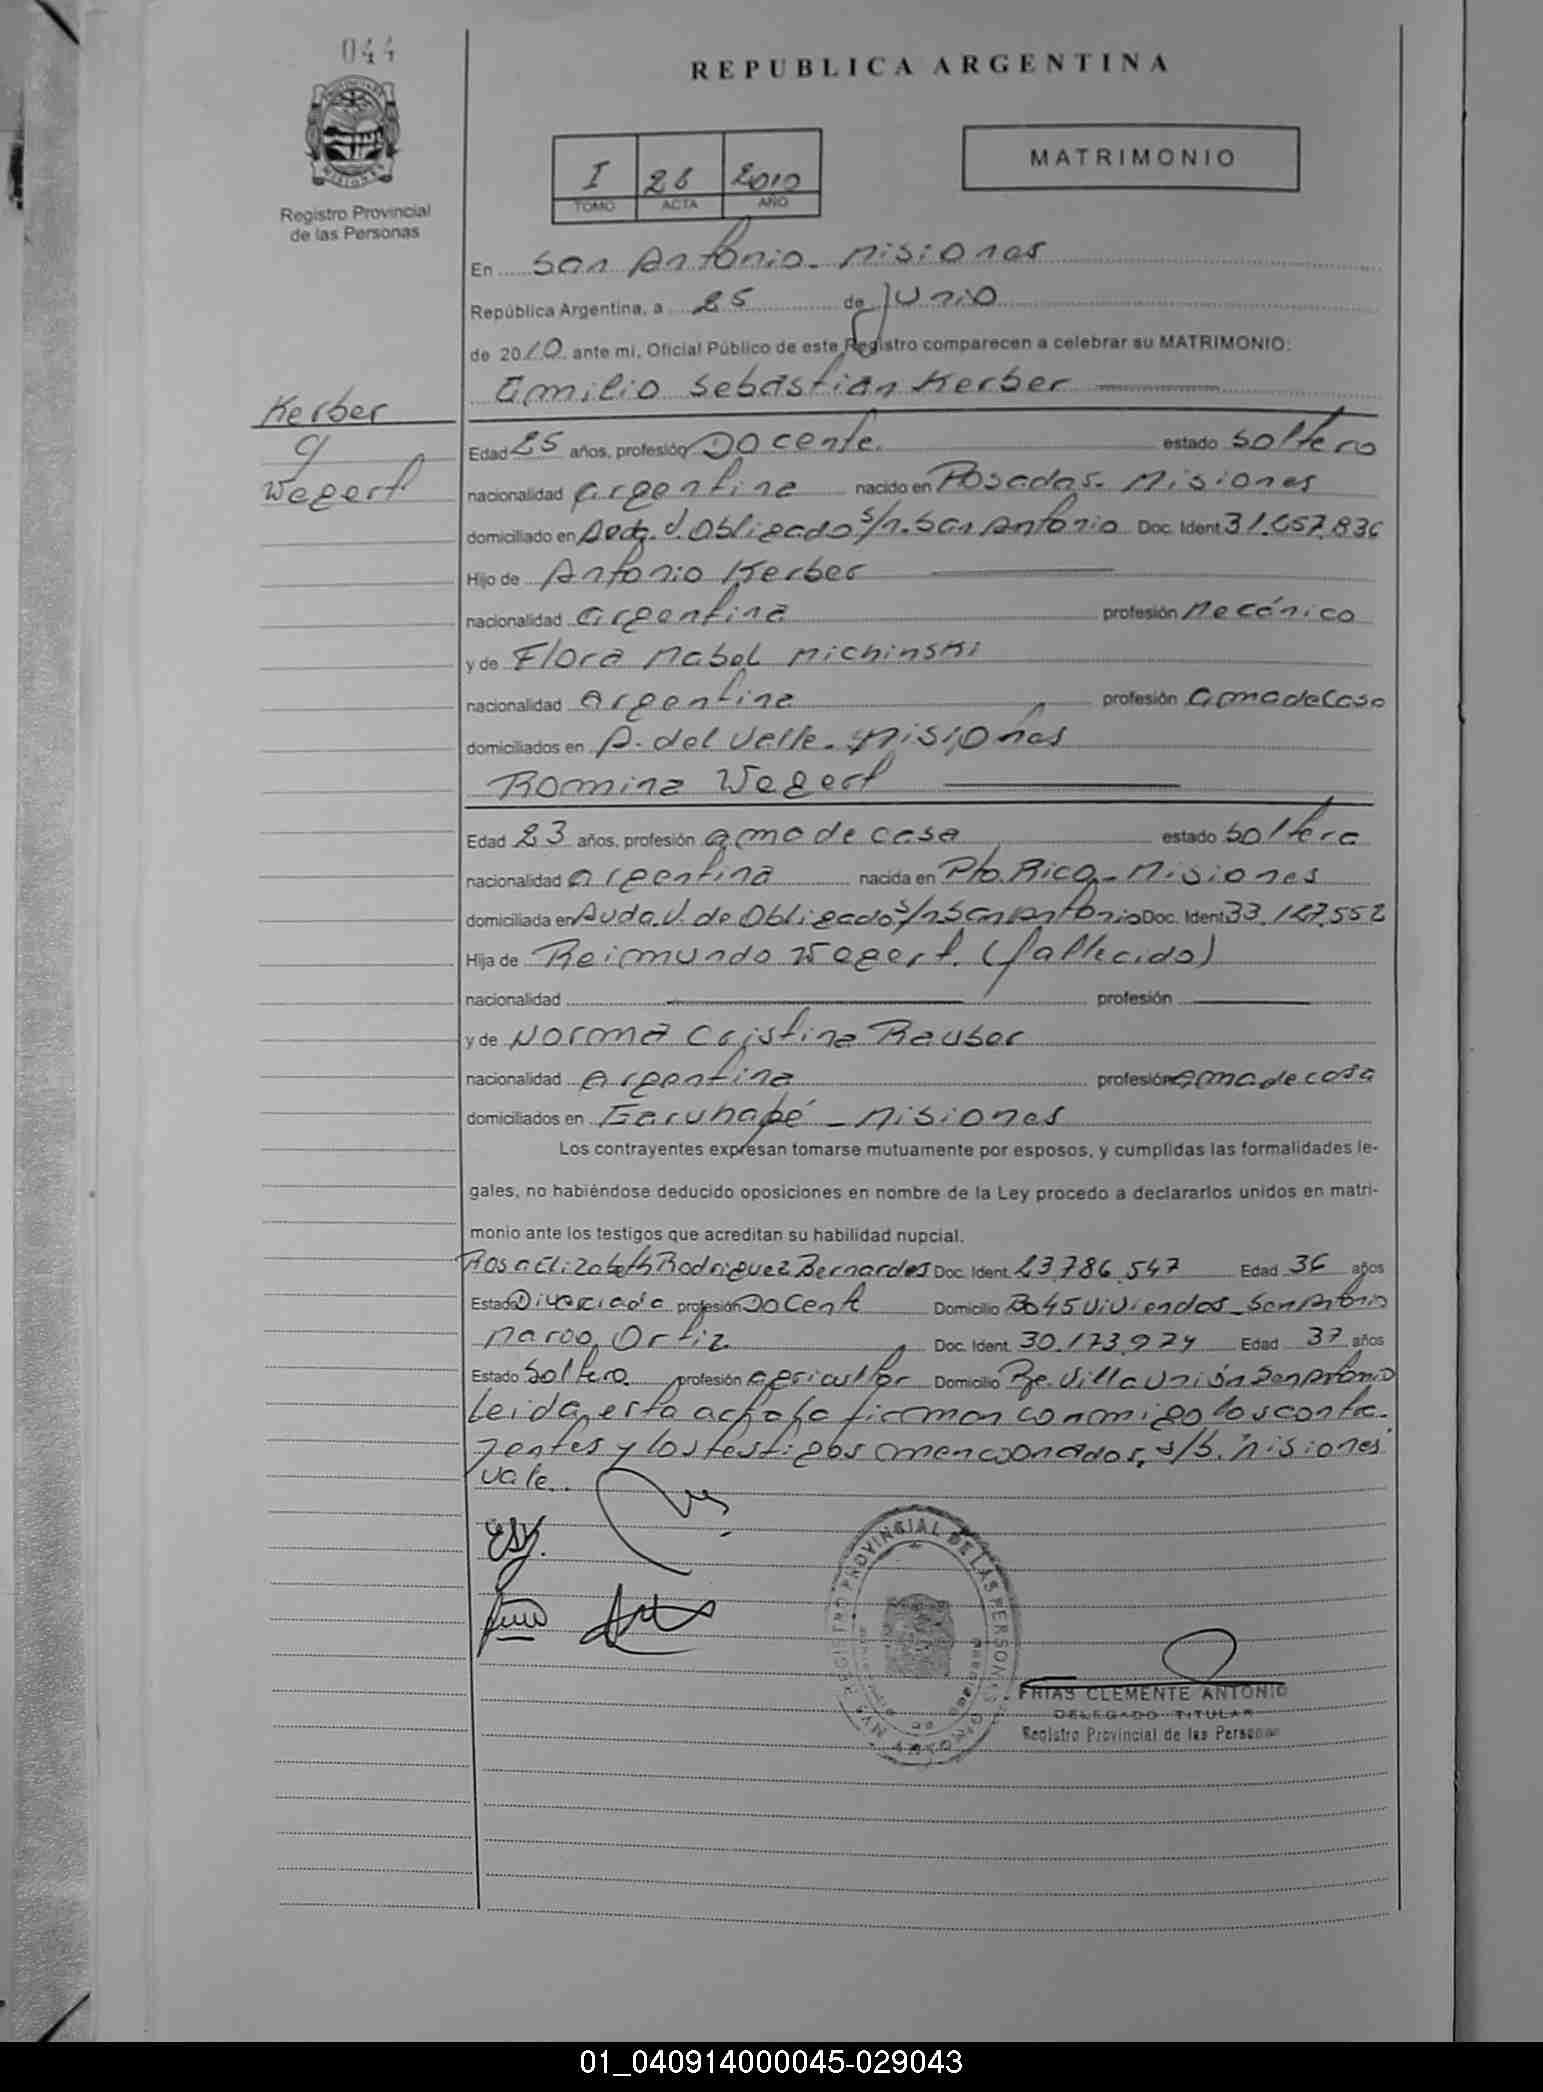 044
REPUBLICA ARGENTINA
MATRIMONIO
I 26 2010
TOMO ACTA AÑO
Registro Provincial
de las Personas
En San Antonio - Misiones
República Argentina, a 25 de Junio
de 2010 ante mi, Oficial Público de este Registro comparecen a celebrar su MATRIMONIO:
Emilio Sebastian Kerber
Kerber
y
Wegert
Edad 25 años, profesión Docente. estado soltero
nacionalidad argentina nacido en Posadas - Misiones
domiciliado en Avda. V. Obligado s/n. San Antonio Doc. Ident 31.657.836
Hijo de Antonio Kerber
nacionalidad argentina profesión Mecánico
y de Flora Mabel Michinski
nacionalidad argentina profesión ama de casa
domiciliados en A. del Valle - Misiones
Romina Wegert
Edad 23 años, profesión ama de casa estado soltera
nacionalidad argentina nacida en Pto. Rico - Misiones
domiciliada en Avda. V. de Obligado s/n San Antonio Doc. Ident 33.127.552
Hija de Reimundo Wegert. (fallecido)
nacionalidad profesión
y de Norma Cristina Rauber
nacionalidad argentina profesión ama de casa
domiciliados en Garuhapé - Misiones
Los contrayentes expresan tomarse mutuamente por esposos, y cumplidas las formalidades le-
gales, no habiéndose deducido oposiciones en nombre de la Ley procedo a declararlos unidos en matri-
monio ante los testigos que acreditan su habilidad nupcial.
Rosa Elizabeth Rodriguez Bernardes Doc. Ident. 23.786.547 Edad 36 años
Estado Divorciada profesión Docente Domicilio Bo 45 Viviendas - San Antonio
Marco, Ortiz Doc. Ident. 30.173.974 Edad 37 años
Estado Soltero. profesión agricultor Domicilio Pje. Villa Unión San Antonio
Leida, esta acta la firman conmigo los contra-
yentes y los testigos mencionados, s/b. "Misiones"
vale.
REGISTRO PROVINCIAL DE LAS PERSONAS
FRIAS CLEMENTE ANTONIO
DELEGADO TITULAR
Registro Provincial de las Personas
01_040914000045-029043